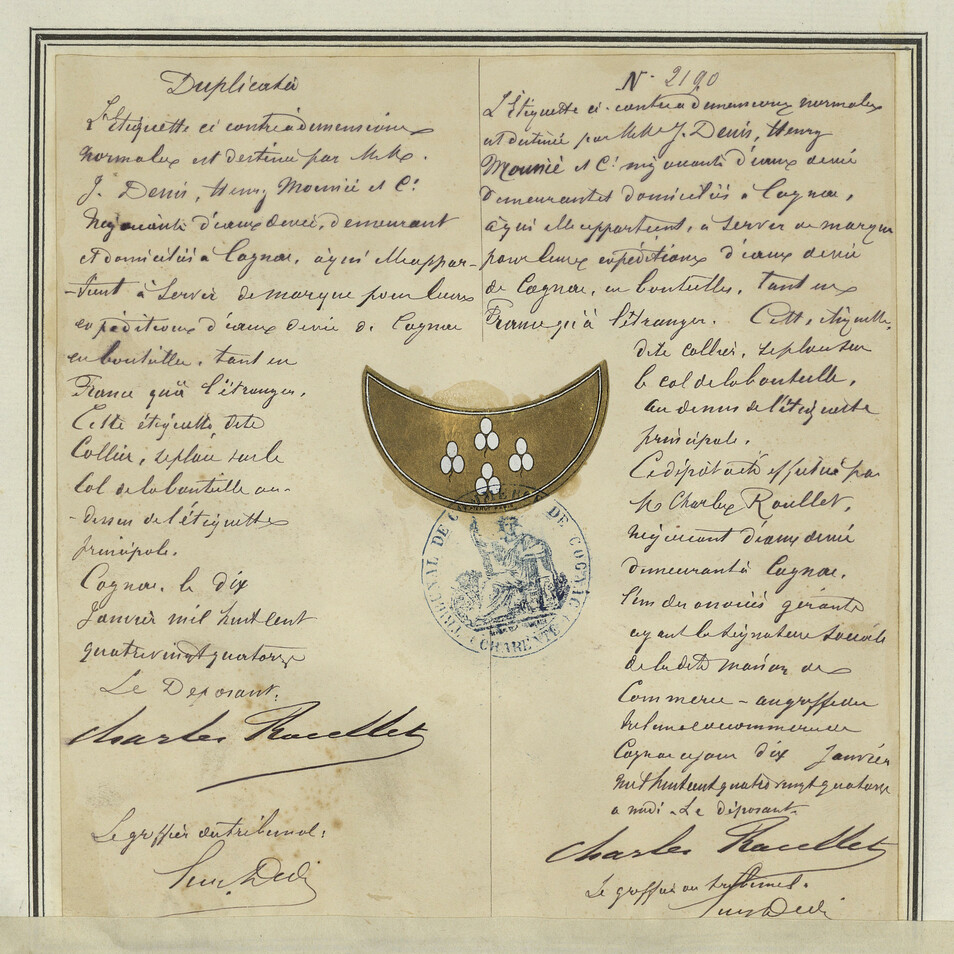 Duplicata
L'Etiquette ci contre à dimensions
normales est destinée par MM.
J. Denis, Henry Mounié et Cie
Négociants d'eaux de vie, demeurant
et domiciliés à Cognac, à qui elle appar-
-tient à servir de marque pour leurs
expéditions d'eaux de vie de Cognac
en bouteilles, tant en
France qu'à l'étranger.
Cette étiquette dite
Collier, se place sur le
Col de la bouteille au-
-dessus de l'étiquette
principale.
Cognac, le dix
Janvier mil huit cent
quatre vingt quatorze
Le Déposant.
Charles Roullet
Le greffier du tribunal:
N° 2190
L'Etiquette ci-contre à dimensions normales
est destinée par MM. J. Denis, Henry
Mounié et Cie négociants d'eaux de vie
demeurant et domiciliés à Cognac,
à qui elle appartient, à servir de marque
pour leurs expéditions d'eaux de vie
de Cognac, en bouteilles, tant en
France qu'à l'étranger. Cette étiquette
dite collier, se place sur
le col de la bouteille,
au dessus de l'étiquette
principale.
Ce dépôt a été effectué par
Mr Charles Roullet,
négociant d'eaux de vie
demeurant à Cognac,
l'un des associés gérants
ayant la signature sociale
de la dite maison de
Commerce - au greffe du
tribunal de commerce de
Cognac ce jour dix Janvier
mil huit cent quatre vingt quatorze
à midi - Le déposant.
Charles Roullet
Le greffier du tribunal.
TRIBUNAL DE COMMERCE DE COGNAC
(CHARENTE)